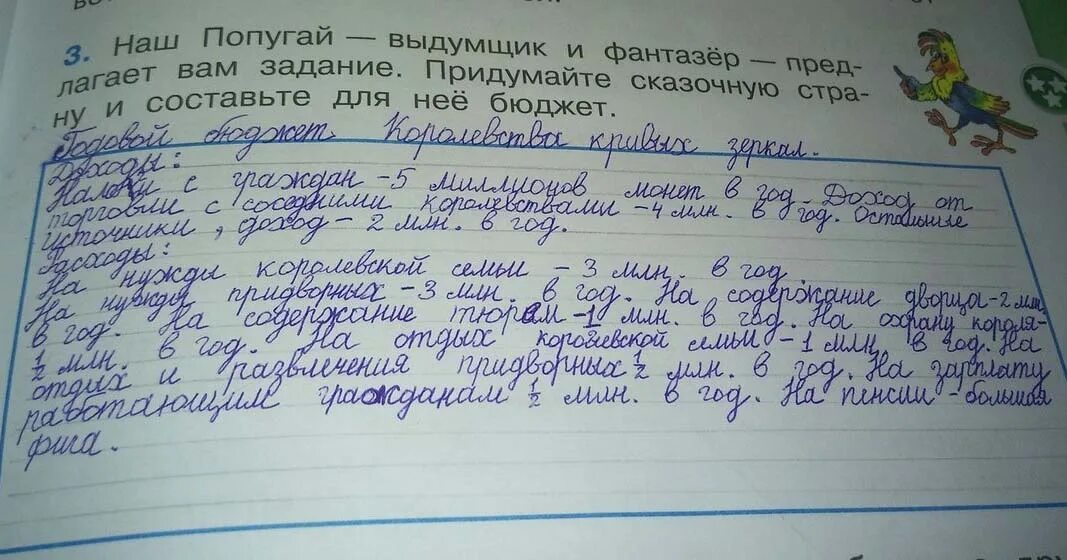 3. Наш Попугай — выдумщик и фантазёр — пред-
лагает вам задание. Придумайте сказочную стра-
ну и составьте для неё бюджет.
Годовой бюджет Королевства кривых зеркал.
Доходы:
Налоги с граждан - 5 миллионов монет в год. Доход от
торговли с соседними королевствами - 4 млн. в год. Остальные
источники, доход - 2 млн. в год.
Расходы:
На нужды королевской семьи - 3 млн. в год.
На нужды придворных - 3 млн. в год. На содержание дворца - 2 млн.
в год. На содержание тюрем - 1 млн. в год. На охрану короля -
1/2 млн. в год. На отдых королевской семьи - 1 млн. в год. На
отдых и развлечения придворных 1/2 млн. в год. На зарплату
работающим гражданам 1/2 млн. в год. На пенсии - большая
фига.